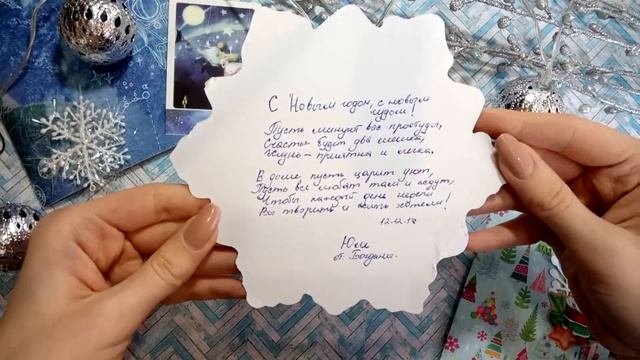 С Новым годом, с новым
чудом!
Пусть минуют вас простуды,
Счастье будет два мешка,
Жизнь – приятна и легка.
В доме пусть царит уют,
Пусть все любят там и ждут,
Чтобы каждый день недели
Вы творить и хотели!
12.12.18
Юле
от Богданы.